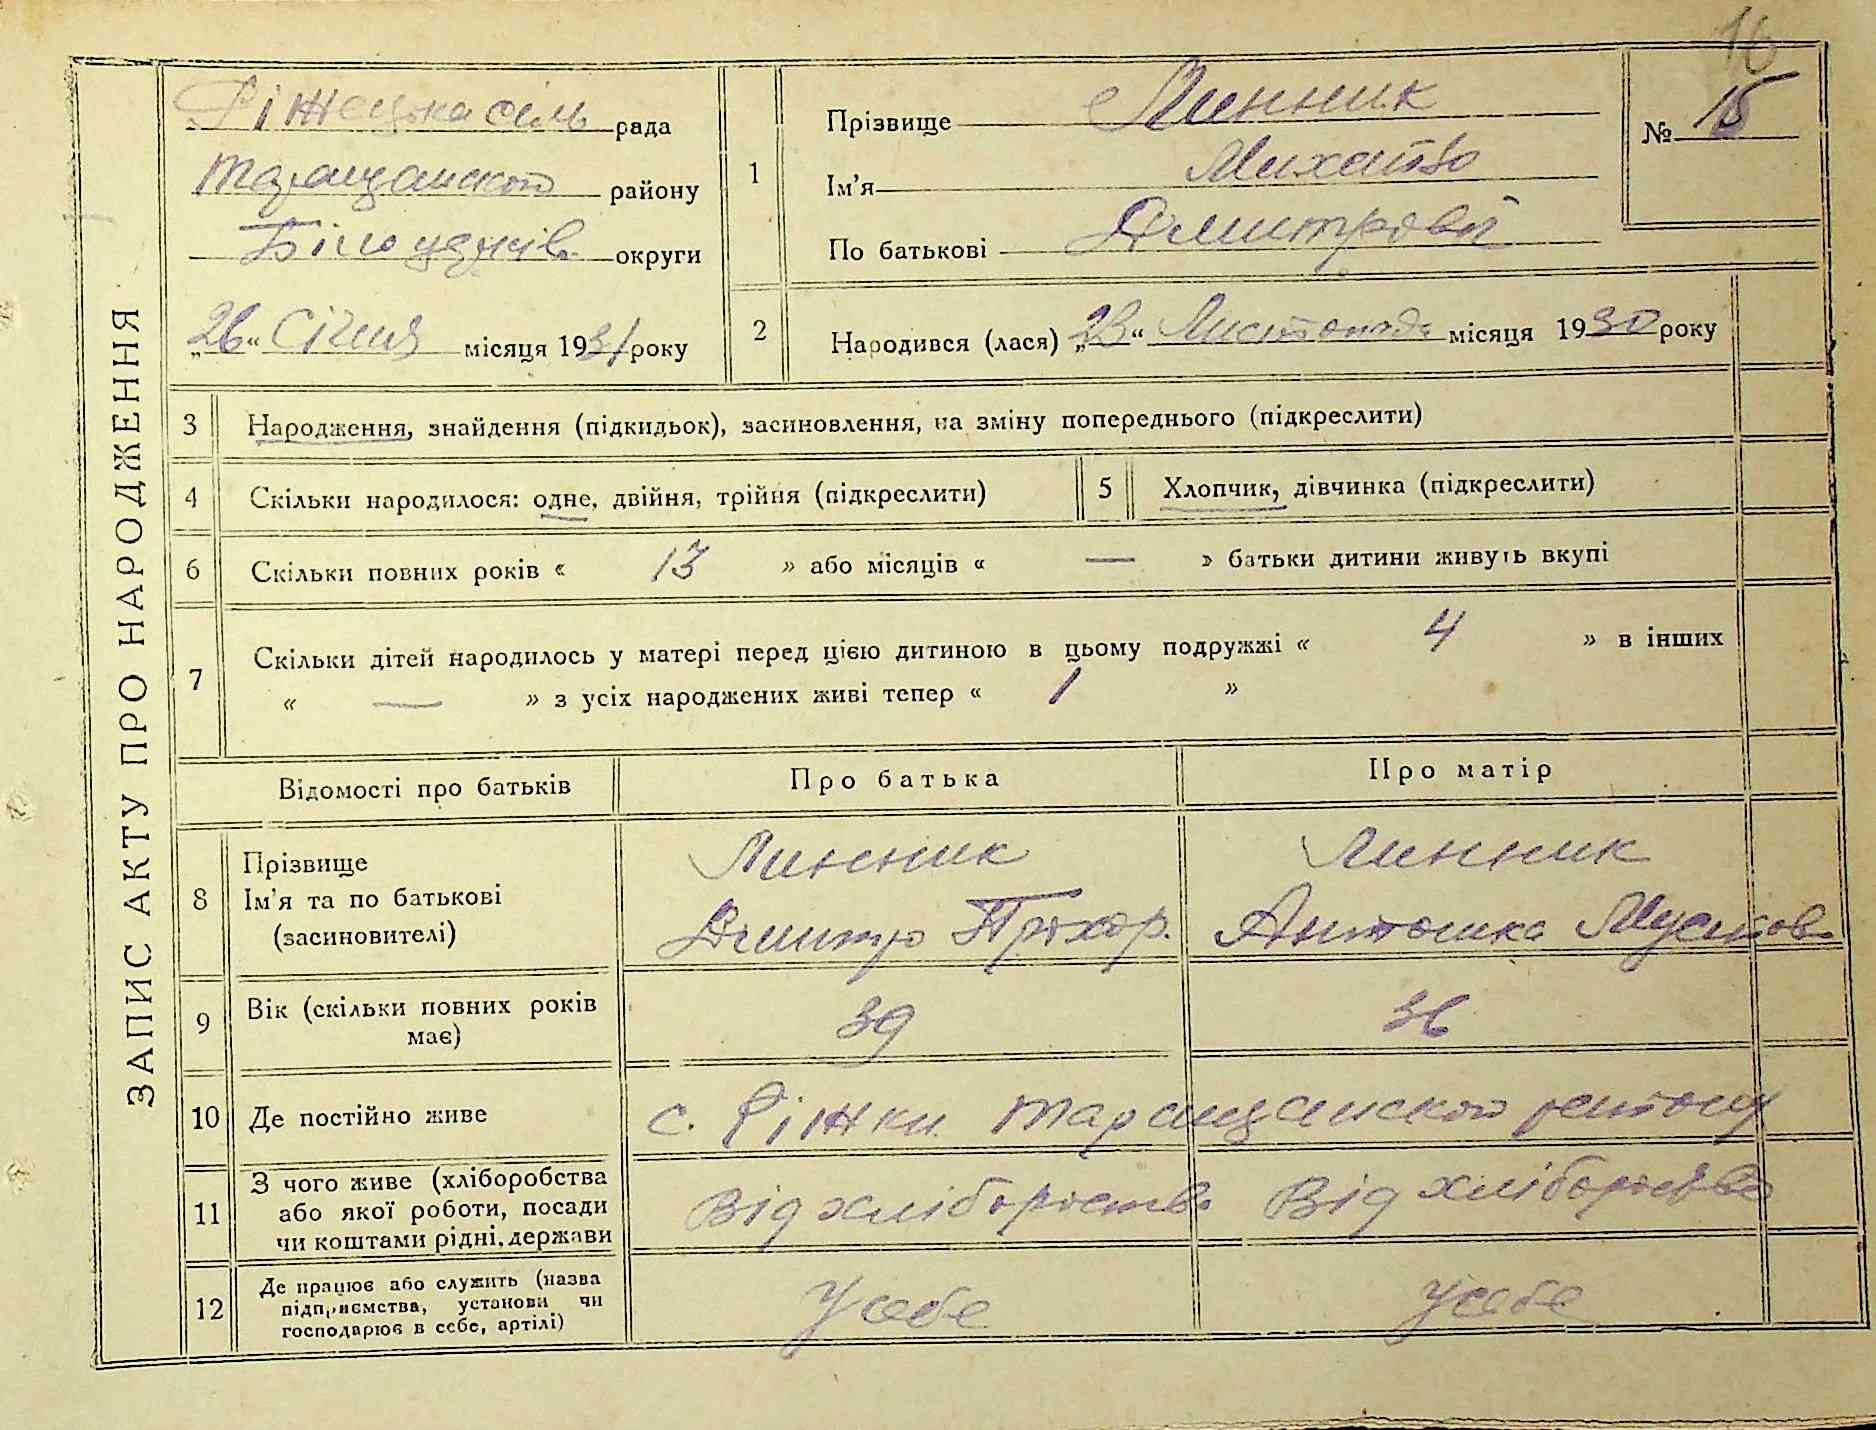 16
ЗАПИС АКТУ ПРО НАРОДЖЕННЯ
Ріжецька сіль рада
Таращанського району
Білоцерків. округи
„26“ Січня місяця 1931 року
1
Прізвище Линник
Ім'я Михайло
По батькові Дмитров
№ 15
2
Народився (лася) „23“ Листопада місяця 1930 року
3 Народження, знайдення (підкидьок), засиновлення, на зміну попереднього (підкреслити)
4 Скільки народилося: одне, двійня, трійня (підкреслити) 5 Хлопчик, дівчинка (підкреслити)
6 Скільки повних років « 13 » або місяців « — » батьки дитини живуть вкупі
7 Скільки дітей народилось у матері перед цією дитиною в цьому подружжі « 4 » в інших
« — » з усіх народжених живі тепер « 1 »
Відомості про батьків Про батька Про матір
8 Прізвище
Ім'я та по батькові
(засиновителі)
Линник
Дмитро Прохор.
Линник
Антошка
9 Вік (скільки повних років
має)
39 36
10 Де постійно живе с. Ріжки Таращанського району
11 З чого живе (хліборобства
або якої роботи, посади
чи коштами рідні, держави
Від хліборобства Від хліборобства
12 Де працює або служить (назва
підприємства, установи чи
господарює в себе, артілі)
У себе У себе